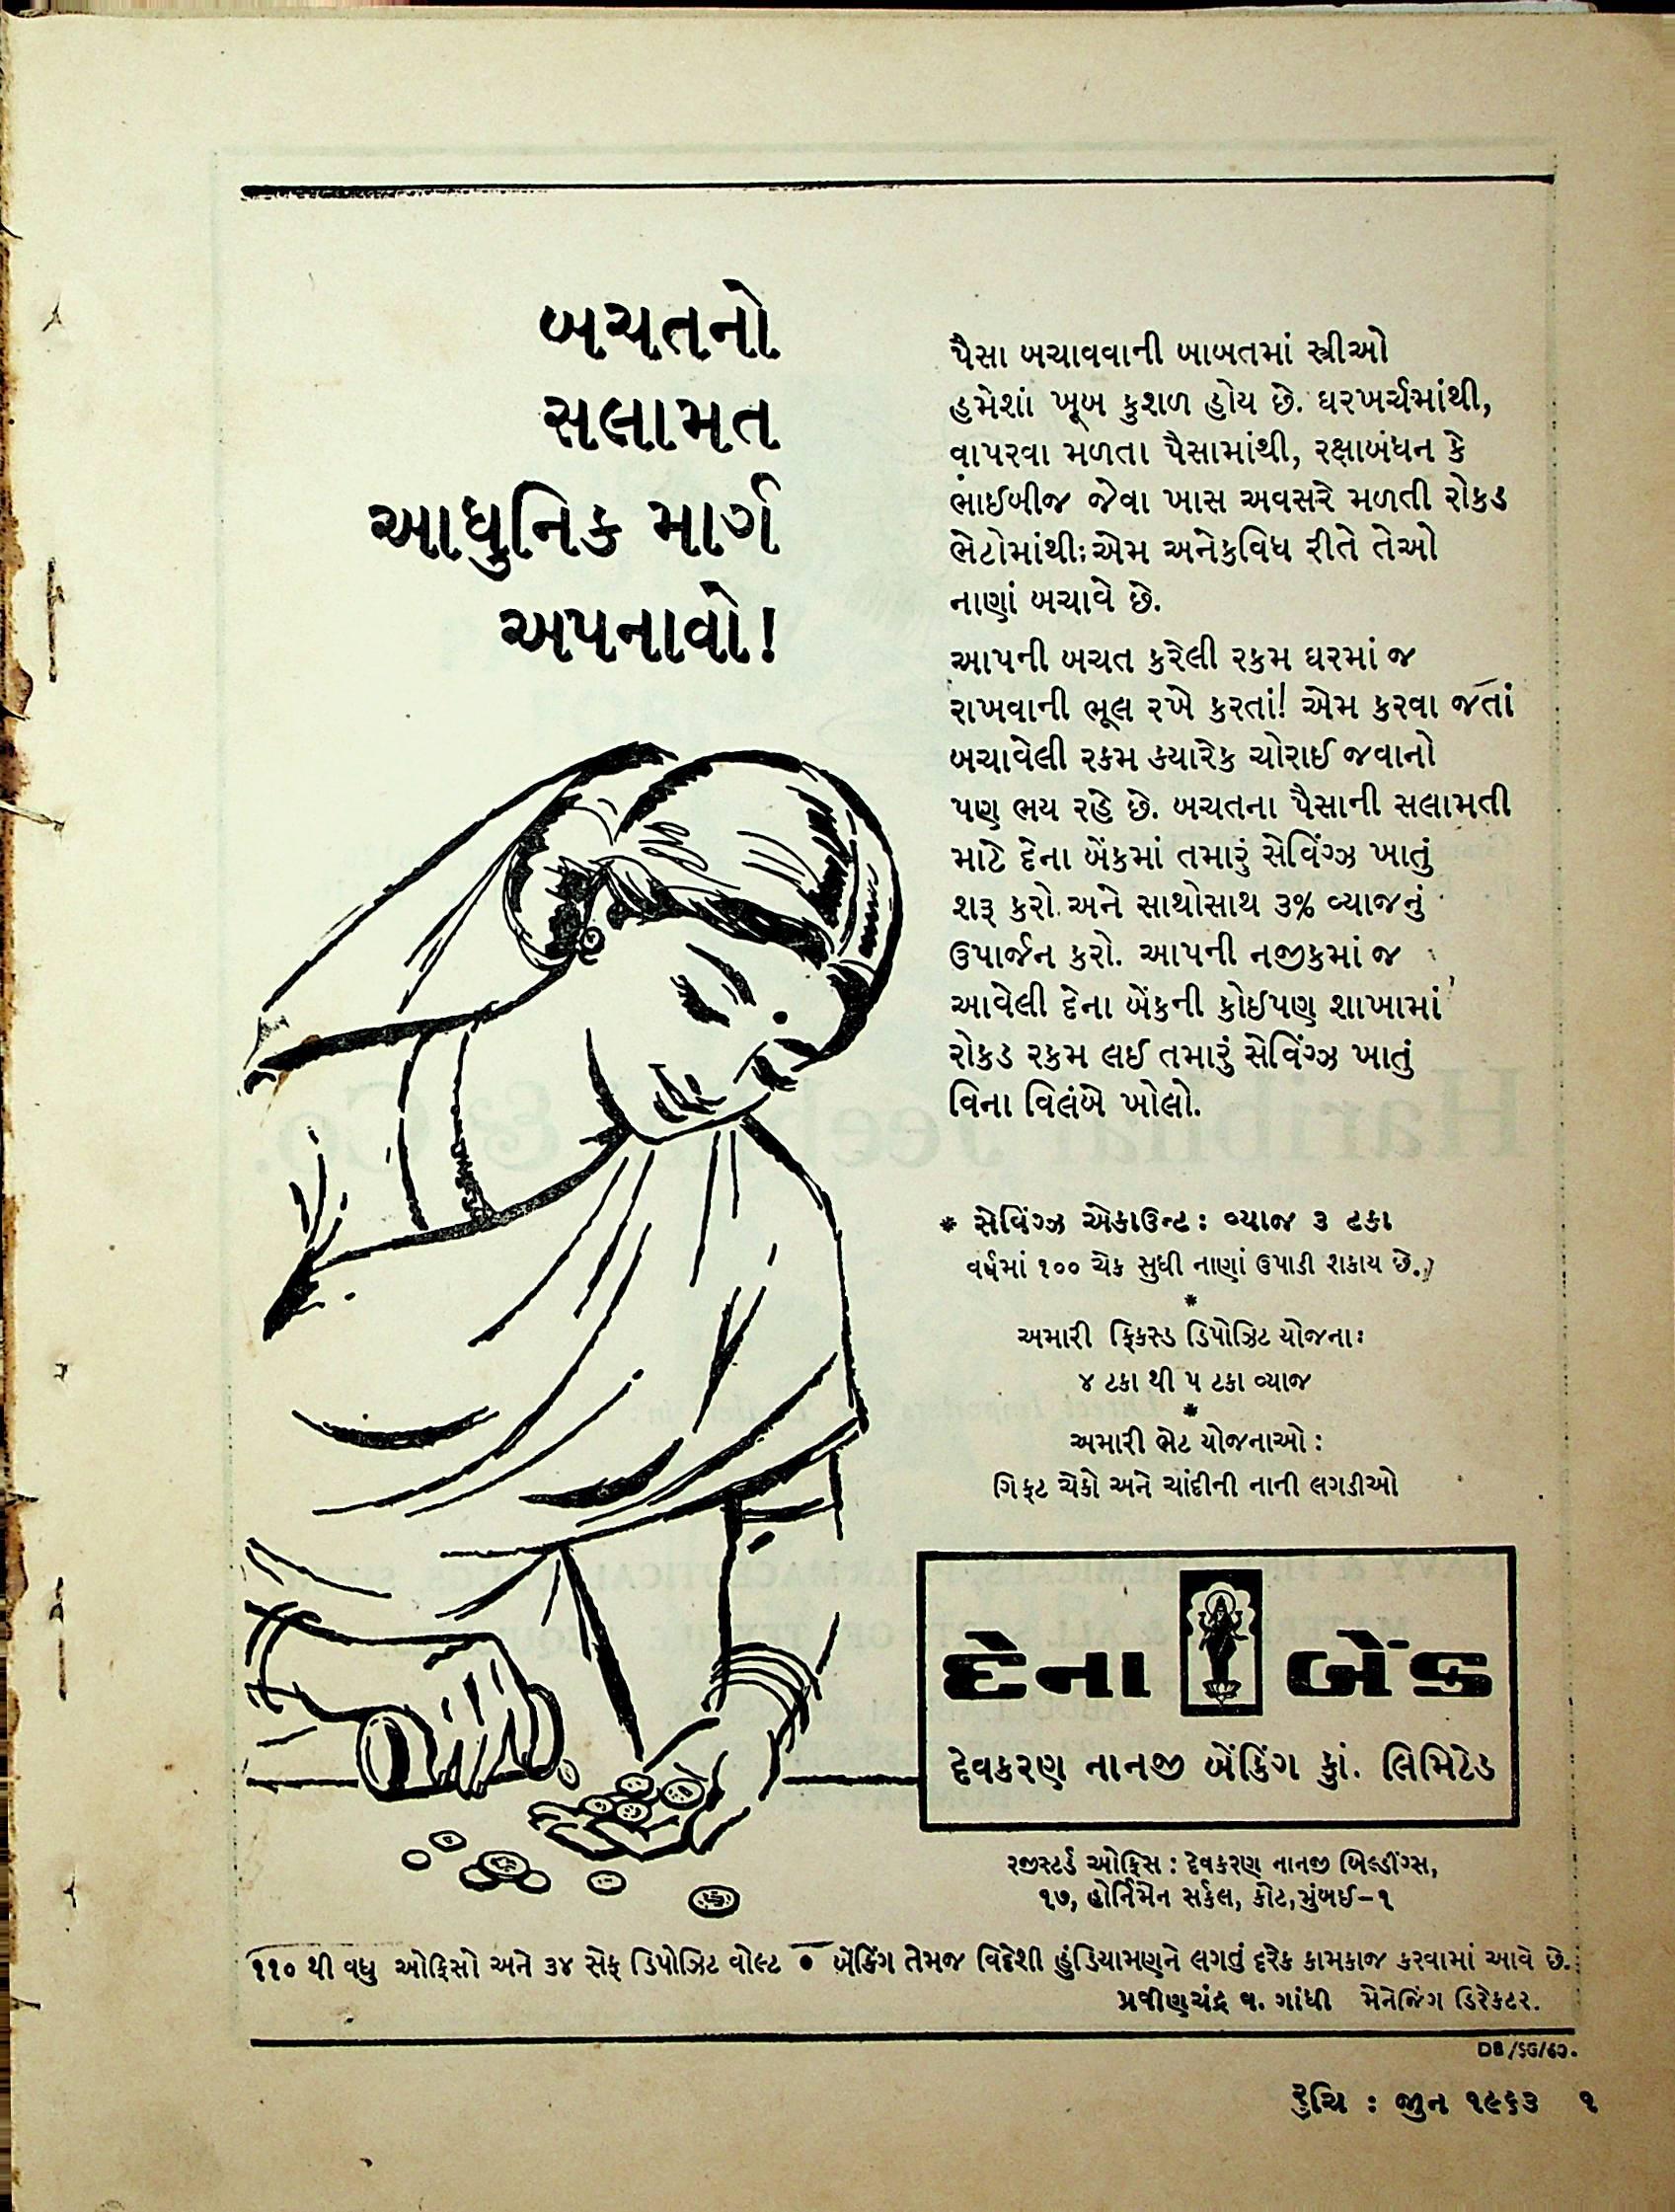 બચતનો
સલામત
આધુનિક માર્ગ
અપનાવો!
પૈસા બચાવવાની બાબતમાં સ્ત્રીઓ
હમેશાં ખૂબ કુશળ હોય છે. ઘરખર્ચમાંથી,
વાપરવા મળતા પૈસામાંથી, રક્ષાબંધન કે
ભાઈબીજ જેવા ખાસ અવસરે મળતી રોકડ
ભેટોમાંથી: એમ અનેકવિધ રીતે તેઓ
નાણાં બચાવે છે.
આપની બચત કરેલી રકમ ઘરમાં જ
રાખવાની ભૂલ રખે કરતાં! એમ કરવા જતાં
બચાવેલી રકમ ક્યારેક ચોરાઈ જવાનો
પણ ભય રહે છે. બચતના પૈસાની સલામતી
માટે દેના બેંકમાં તમારું સેવિંગ્ઝ ખાતું
શરૂ કરો અને સાથોસાથ ૩% વ્યાજનું
ઉપાર્જન કરો. આપની નજીકમાં જ
આવેલી દેના બેંકની કોઈપણ શાખામાં
રોકડ રકમ લઈ તમારું સેવિંગ્ઝ ખાતું
વિના વિલંબે ખોલો.
* સેવિંગ્ઝ એકાઉન્ટ: વ્યાજ ૩ ટકા
વર્ષમાં ૧૦૦ ચેક સુધી નાણાં ઉપાડી શકાય છે.
*
અમારી ફિકસ્ડ ડિપોઝિટ યોજના:
૪ ટકા થી ૫ ટકા વ્યાજ
*
અમારી ભેટ યોજનાઓ:
ગિફ્ટ ચેકો અને ચાંદીની નાની લગડીઓ
દેના બેંક
દેવકરણ નાનજી બેંકિંગ કુાં. લિમિટેડ
રજીસ્ટર્ડ ઓફિસ: દેવકરણ નાનજી બિલ્ડીંગ્સ,
૧૭, હોર્નિમેન સર્કલ, કોટ, મુંબઈ-૧
૧૧૦ થી વધુ ઓફિસો અને ૩૪ સેફ ડિપોઝિટ વોલ્ટ ● બેંકિંગ તેમજ વિદેશી હુંડિયામણને લગતું દરેક કામકાજ કરવામાં આવે છે.
પ્રવીણચંદ્ર વ. ગાંધી મેનેજિંગ ડિરેકટર.
રુચિ : જૂન ૧૯૬૩ ૧